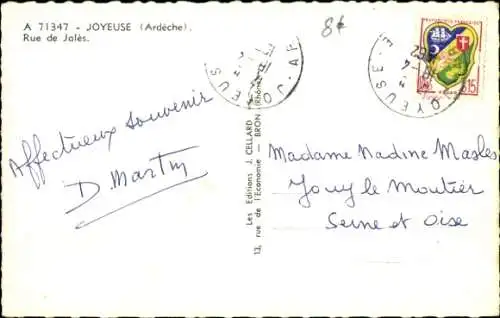 A 71347 - JOYEUSE (Ardèche).
Rue de Jalès.
8*
REPUBLIQUE FRANÇAISE
0,15
JOYEUSE
Affectueux souvenir
D. Martin
Les Editions J. CELLARD
13, rue de l'Economie - BRON (Rhône)
Madame Nadine Masles
Jouy le Moutier
Seine et Oise